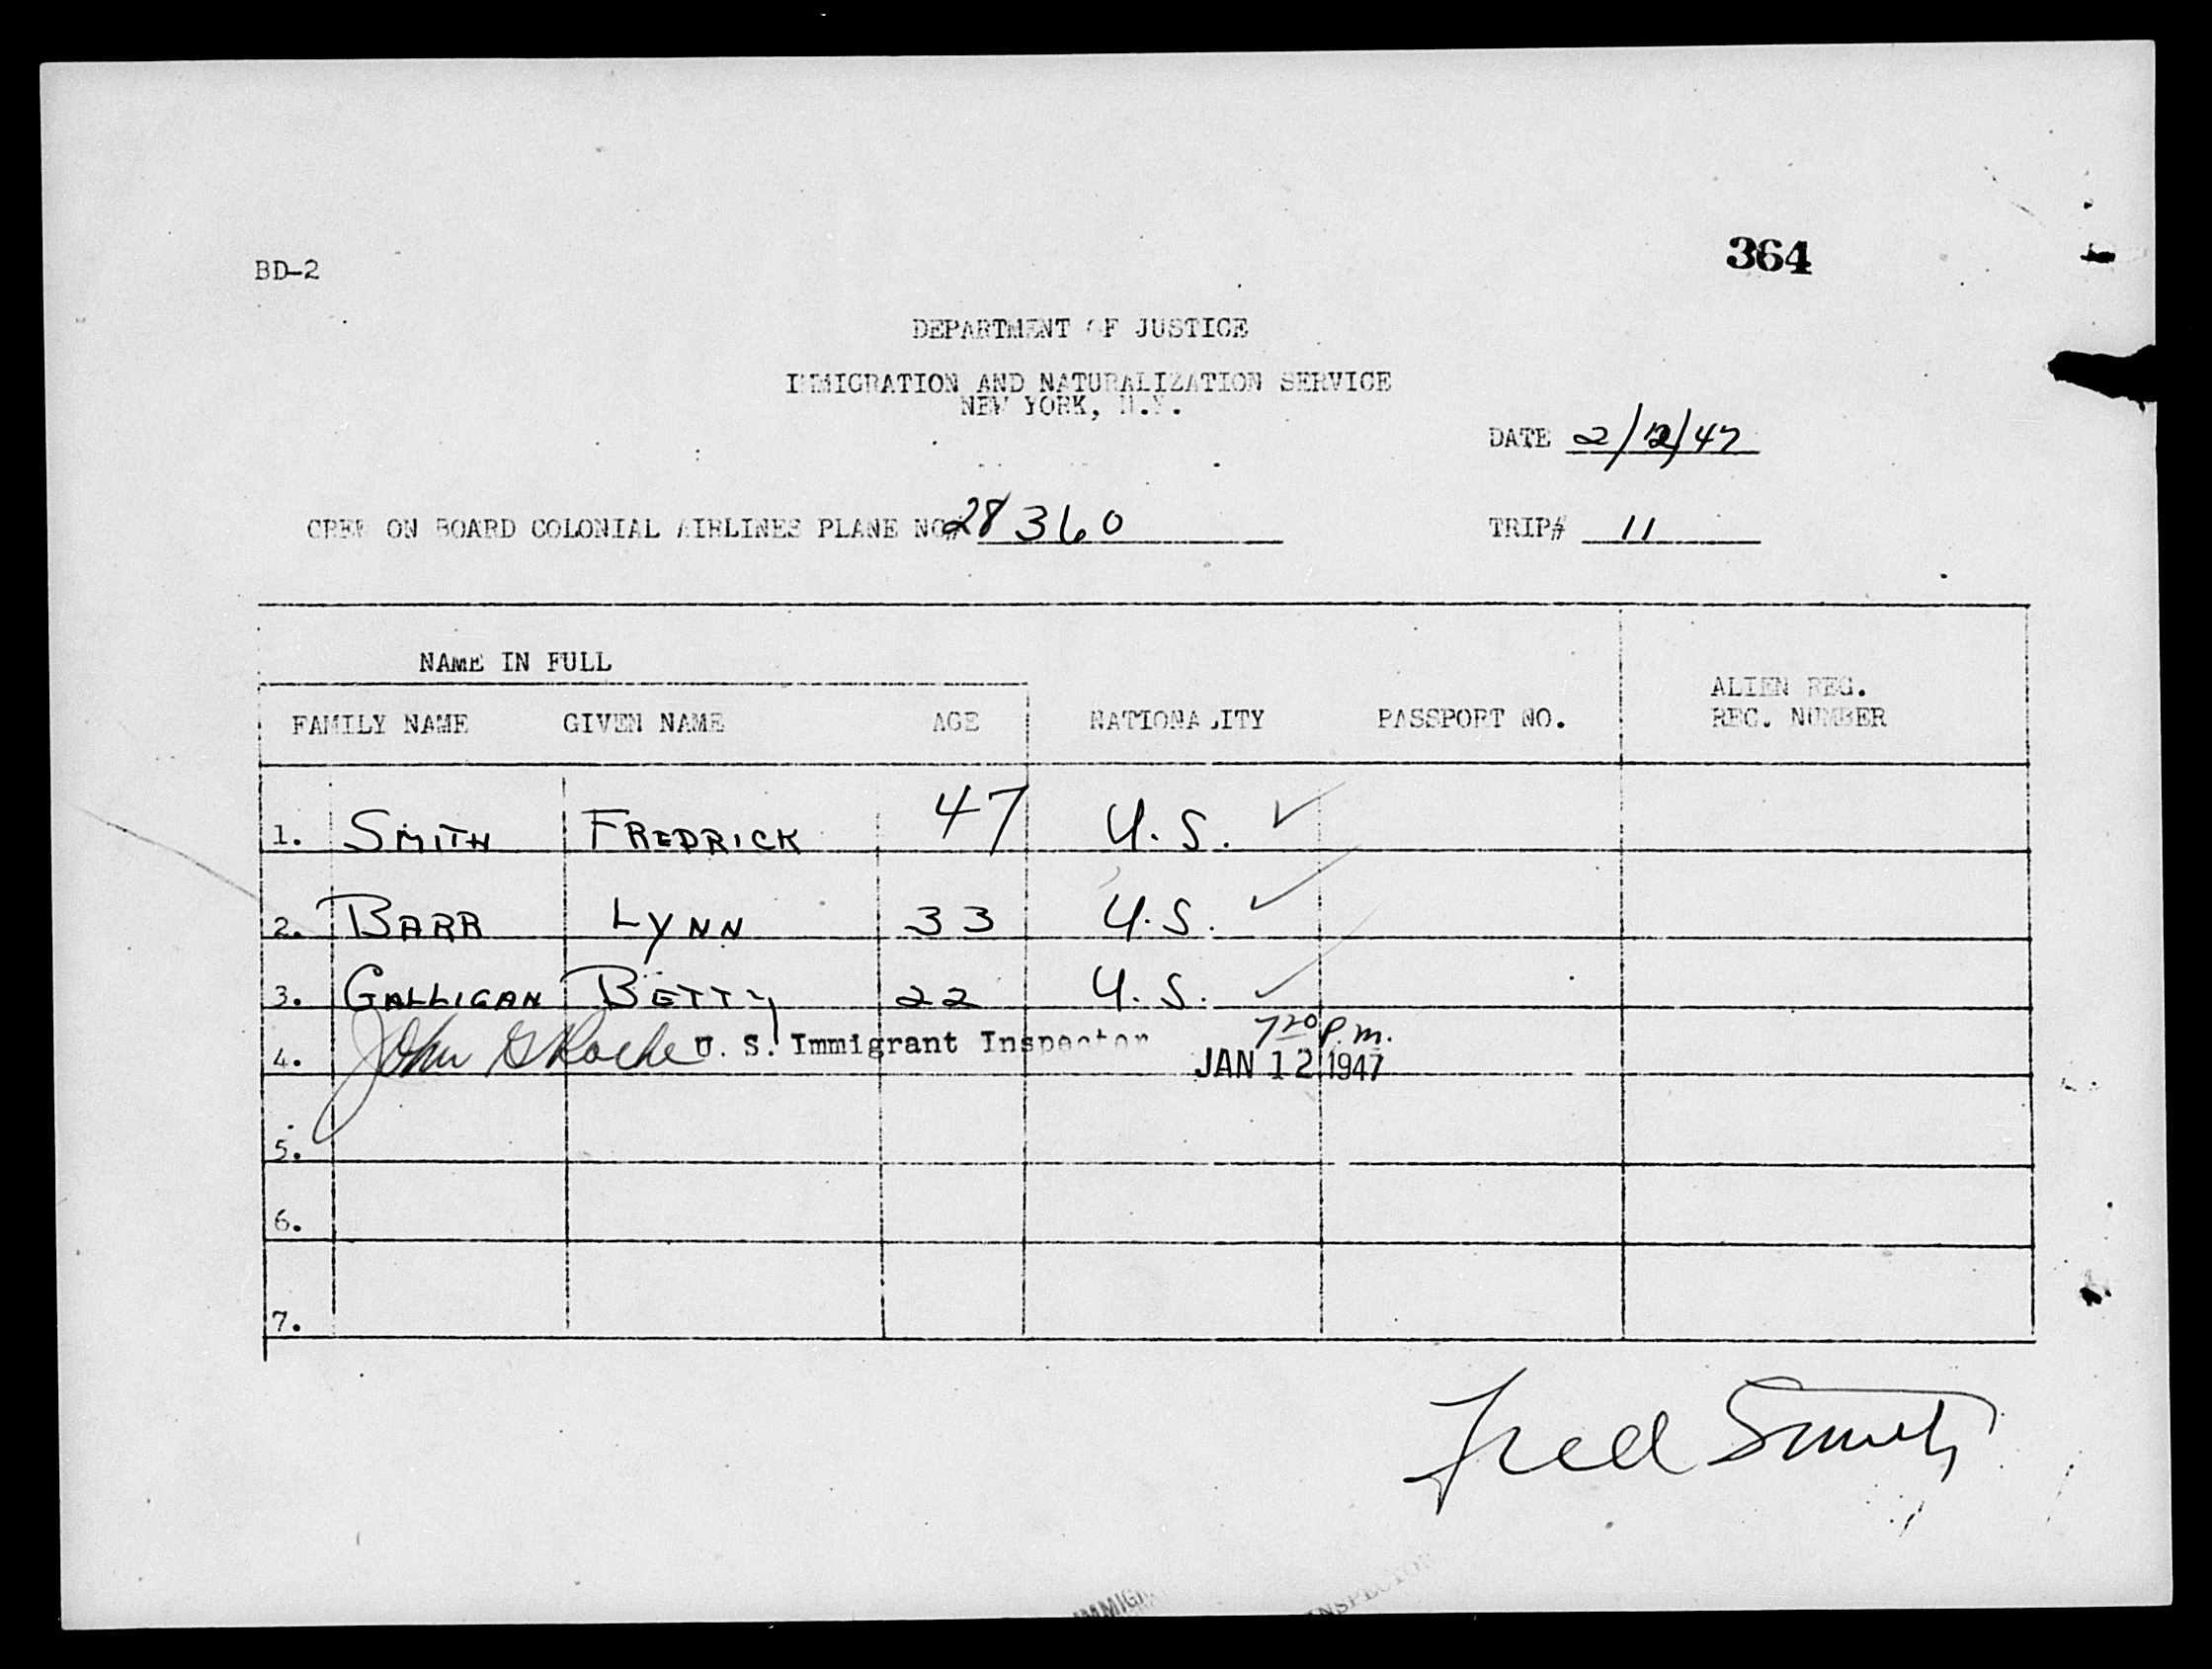 364
BD-2
DEPARTMENT OF JUSTICE
IMMIGRATION AND NATURALIZATION SERVICE
NEW YORK, N.Y.
DATE 2/12/47
CREW ON BOARD COLONIAL AIRLINES PLANE NO# 28360 TRIP# 11
NAME IN FULL
ALIEN REG.
FAMILY NAME GIVEN NAME AGE NATIONALITY PASSPORT NO. REC. NUMBER
1. SMITH FREDRICK 47 U.S. ✓
2. BARR LYNN 33 U.S. ✓
3. GALLIGAN BETTY 22 U.S. ✓
7 20 P.m.
4. John G Roche U. S. Immigrant Inspector JAN 12 1947
5.
6.
7.
Fred Smith